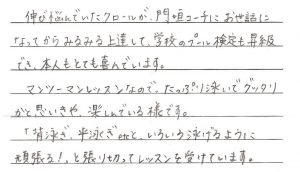 伸び悩んでいたクロールが、門垣コーチにお世話に
なってからみるみる上達して、学校のプール検定も昇級
でき、本人もとても喜んでいます。
マンツーマンレッスンなので、たっぷり泳いでグッタリ
かと思いきや、楽しんでいる様です。
「背泳ぎ、平泳ぎetcと、いろいろ泳げるように
頑張る！」と張り切ってレッスンを受けています。